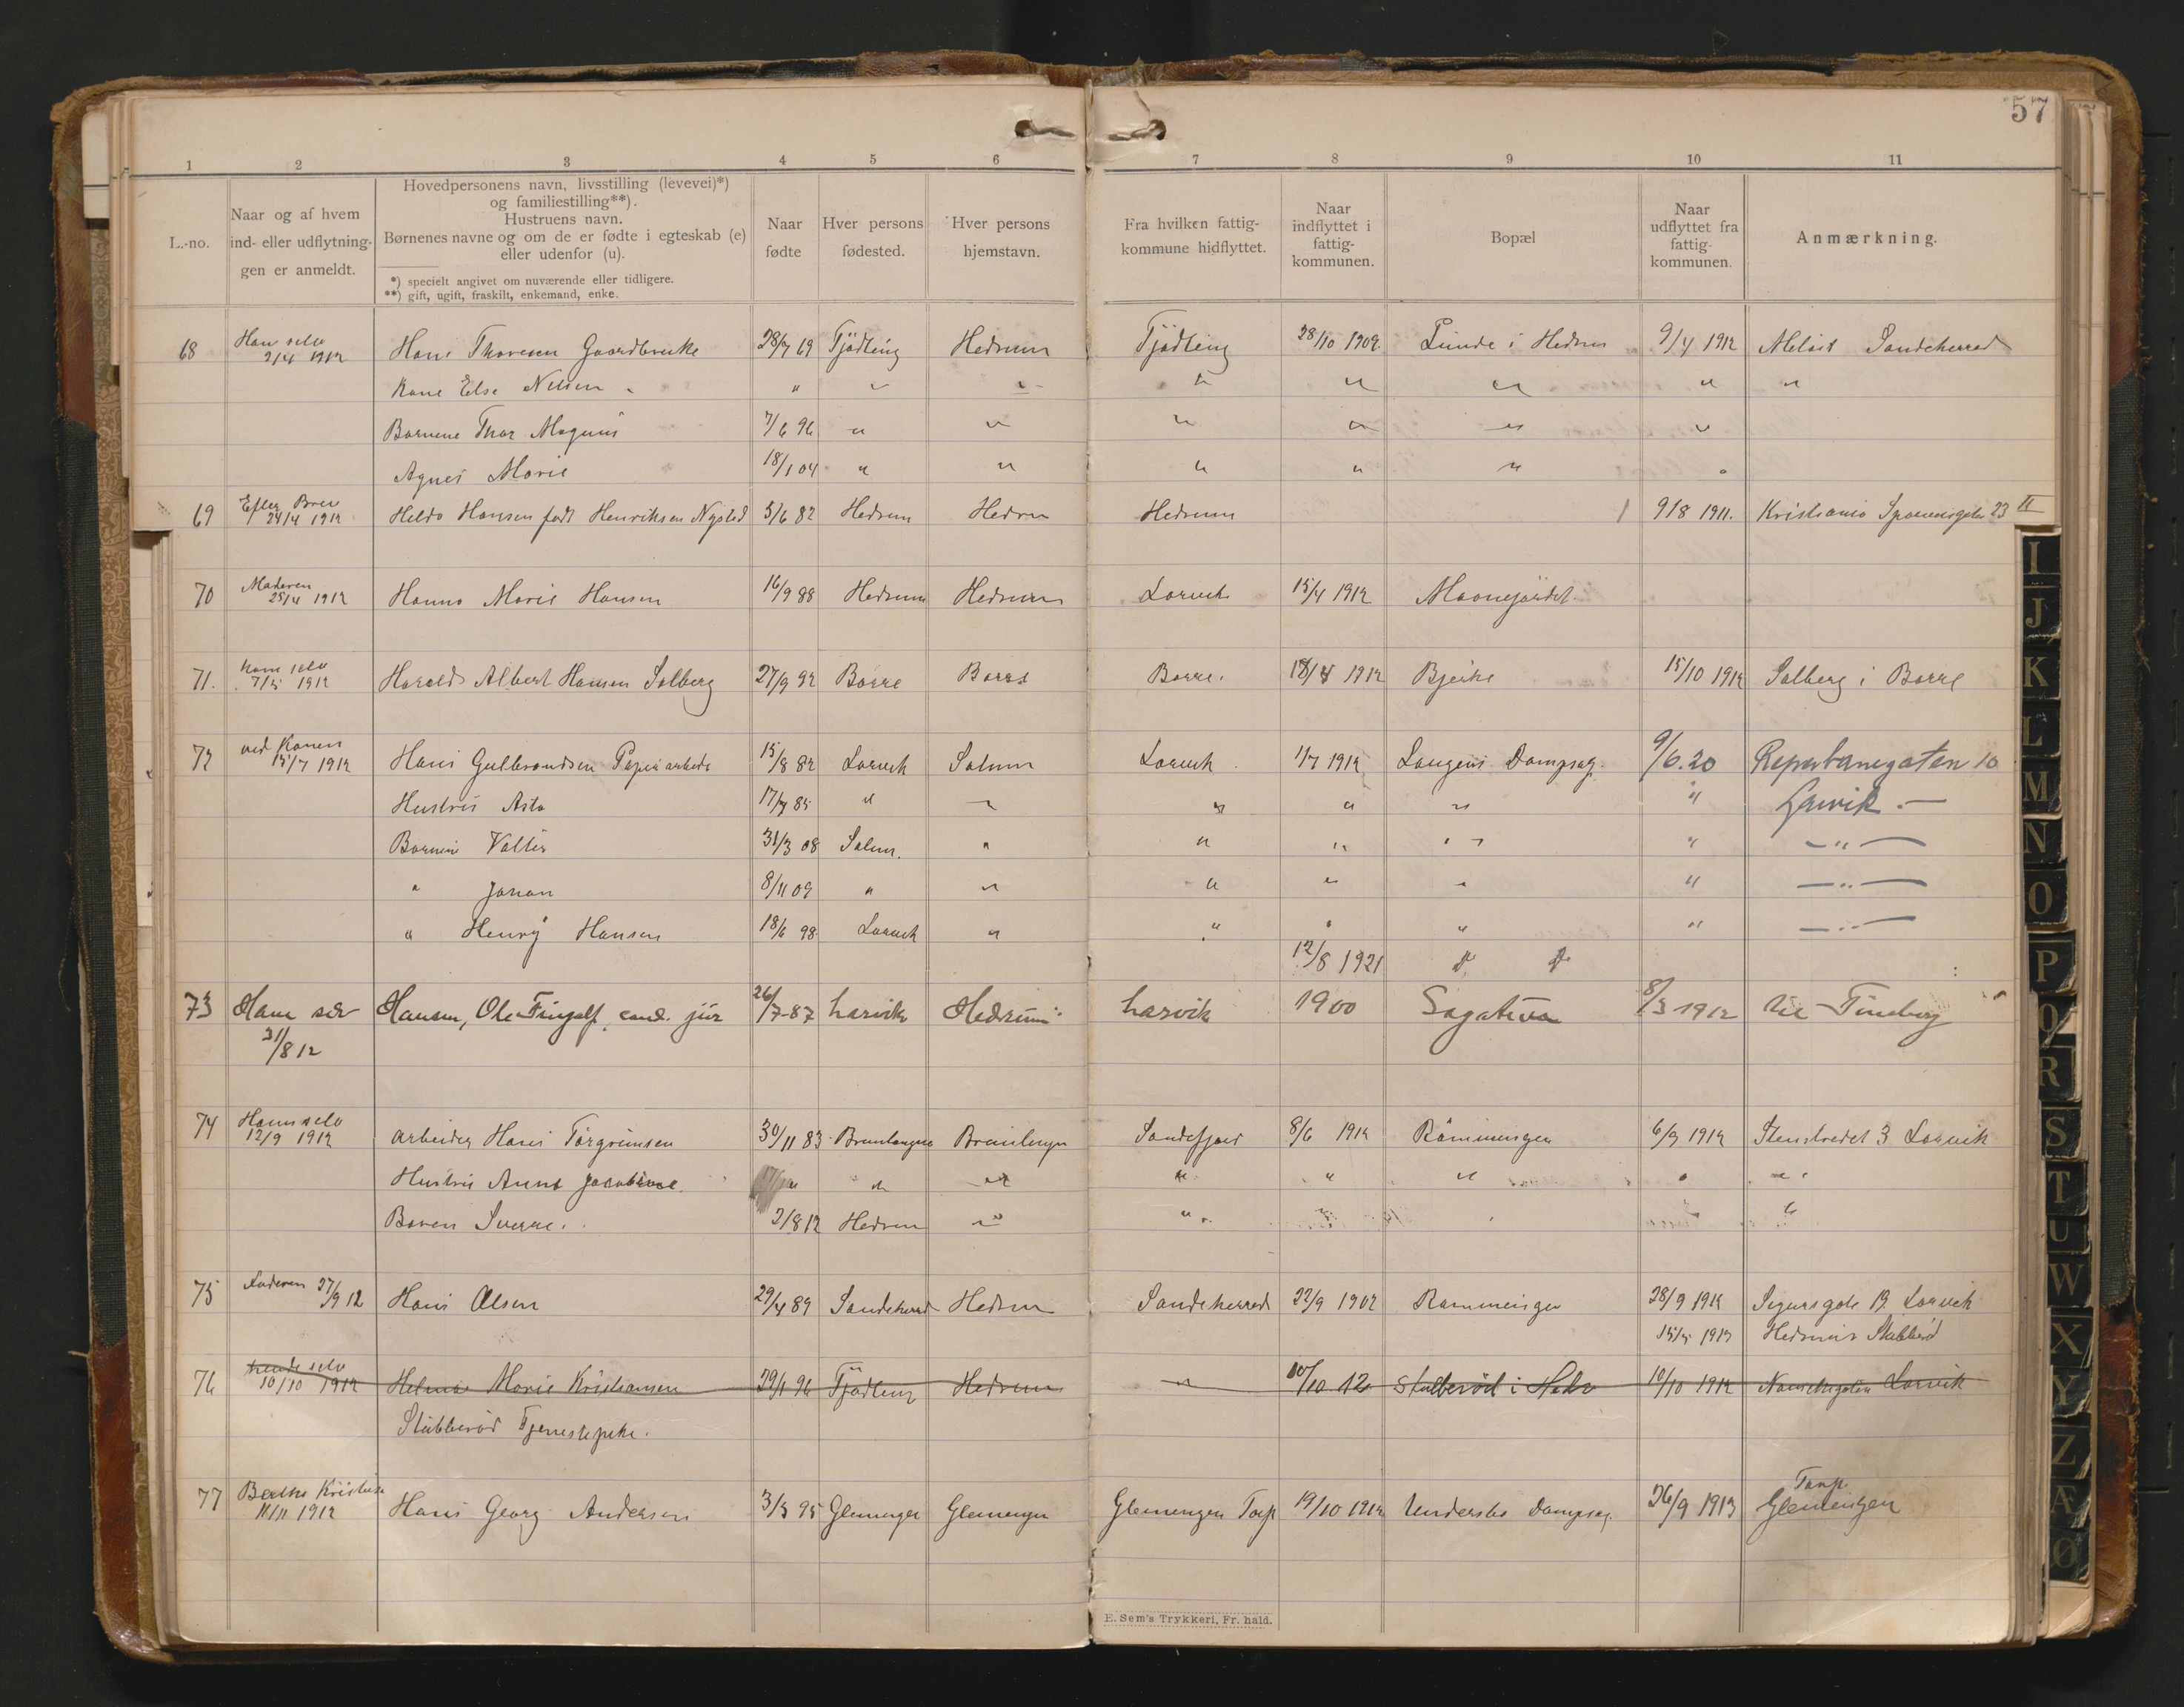 57
1 2 3 4 5 6 7 8 9 10 11
L.-no.
Naar og af hvem
ind- eller udflytnin-
gen er anmeldt.
Hovedpersonens navn, livsstilling (levevei)*)
og familiestilling**).
Hustruens navn.
Børnenes navne og om de er fødte i egteskab (e)
eller udenfor (u).
*) specielt angivet om nuværende eller tidligere.
**) gift, ugift, fraskilt, enkemand, enke.
Naar
fødte
Hver persons
fødested.
Hver persons
hjemstavn.
Fra hvilken fattig-
kommune hidflyttet.
Naar
indflyttet i
fattig-
kommunen.
Bopæl
Naar
udflyttet fra
fattig-
kommunen.
Anmærkning.
68 Han selv 9/4 1912 Hans Thoresen Gaardbruke 28/7 69 Tjødling Hedrum Tjødling 28/10 1909 Lunde i Hedrum 9/4 1912 Sandeherred
Kone Else Nilsen " " " " " " " "
Barnene Thor Magnus 7/6 96 " " " " " "
Agnes Marie 18/1 04 " " " " " "
69 Efter Brev 24/4 1912 Helda Hansen født Henriksen Nysted 5/6 82 Hedrum Hedrum Hedrum 9/8 1911. Kristiania 23 II
70 Moderen 25/4 1912 Hanna Marie Hansen 16/9 88 Hedrum Hedrum Larvik 15/4 1912
71. ham selv 7/5 1912 Harald Albert Hansen Solberg 27/9 92 Borre Borre Borre. 18/4 1912 Bjerke 15/10 1912 Solberg i Borre
72 ved Konen 15/7 1912 Hans Gulbrandsen Papirarbeide 15/8 82 Larvik Solum Larvik 1/7 1912 Laugens Dampsag. 9/6.20 Reperbanegaten 10
Hustru Asta 17/7 85 " " " " " " Larvik. —
Barnene Valter 31/3 08 Solum. " " " " " — " —
" Johan 8/11 09 " " " " " " — " —
" Henry Hansen 18/6 98 Larvik " " " " " — " —
12/8 1921
73 Ham selv Hansen, Ole Fingalf, cand. jur 26/7-87 Larvik Hedrum Larvik 1900 Sagatun 8/3 1912 til Tønsberg
31/8 12
74 Ham selv 12/9 1912 arbeider Hans Torgrimsen 30/11 83 Brunlangnes Brunlangnes Sandefjord 8/6 1912 Rømmingen 6/9 1912 Stenstredet 3 Larvik
Hustru Anna Jacobine. " " " " " " " "
Baren Sverre. 2/8 12 Hedrum " " " "
75 Faderen 27/9 12 Hans Olsen 29/4 89 Sandeherred Hedrum Sandeherred 22/9 1902 Rømmingen 28/9 1912 Sigurdsgate 19. Larvik
15/5 1913 Hedrum Stubberød
76 hende selv 10/10 1912 Helma Marie Kristiansen 29/1 96 Tjødling Hedrum " 10/10 12 Stubberød i Hedr 10/10 1912 Nansetgaten Larvik
Stubberød Tjenestepike.
77 Berthe Kristensen 11/11 1912 Hans Georg Andersen 3/3 95 Glemmengen Glemmengen Glemmengen Torp 19/10 1912 Understes Dampsag. 26/9 1913 Torp. Glemmengen
E. Sem's Trykkeri, Fr. hald.
I
J
K
L
M
N
O
P
Q
R
S
T
U
W
X
Y
Z
Æ
Ø